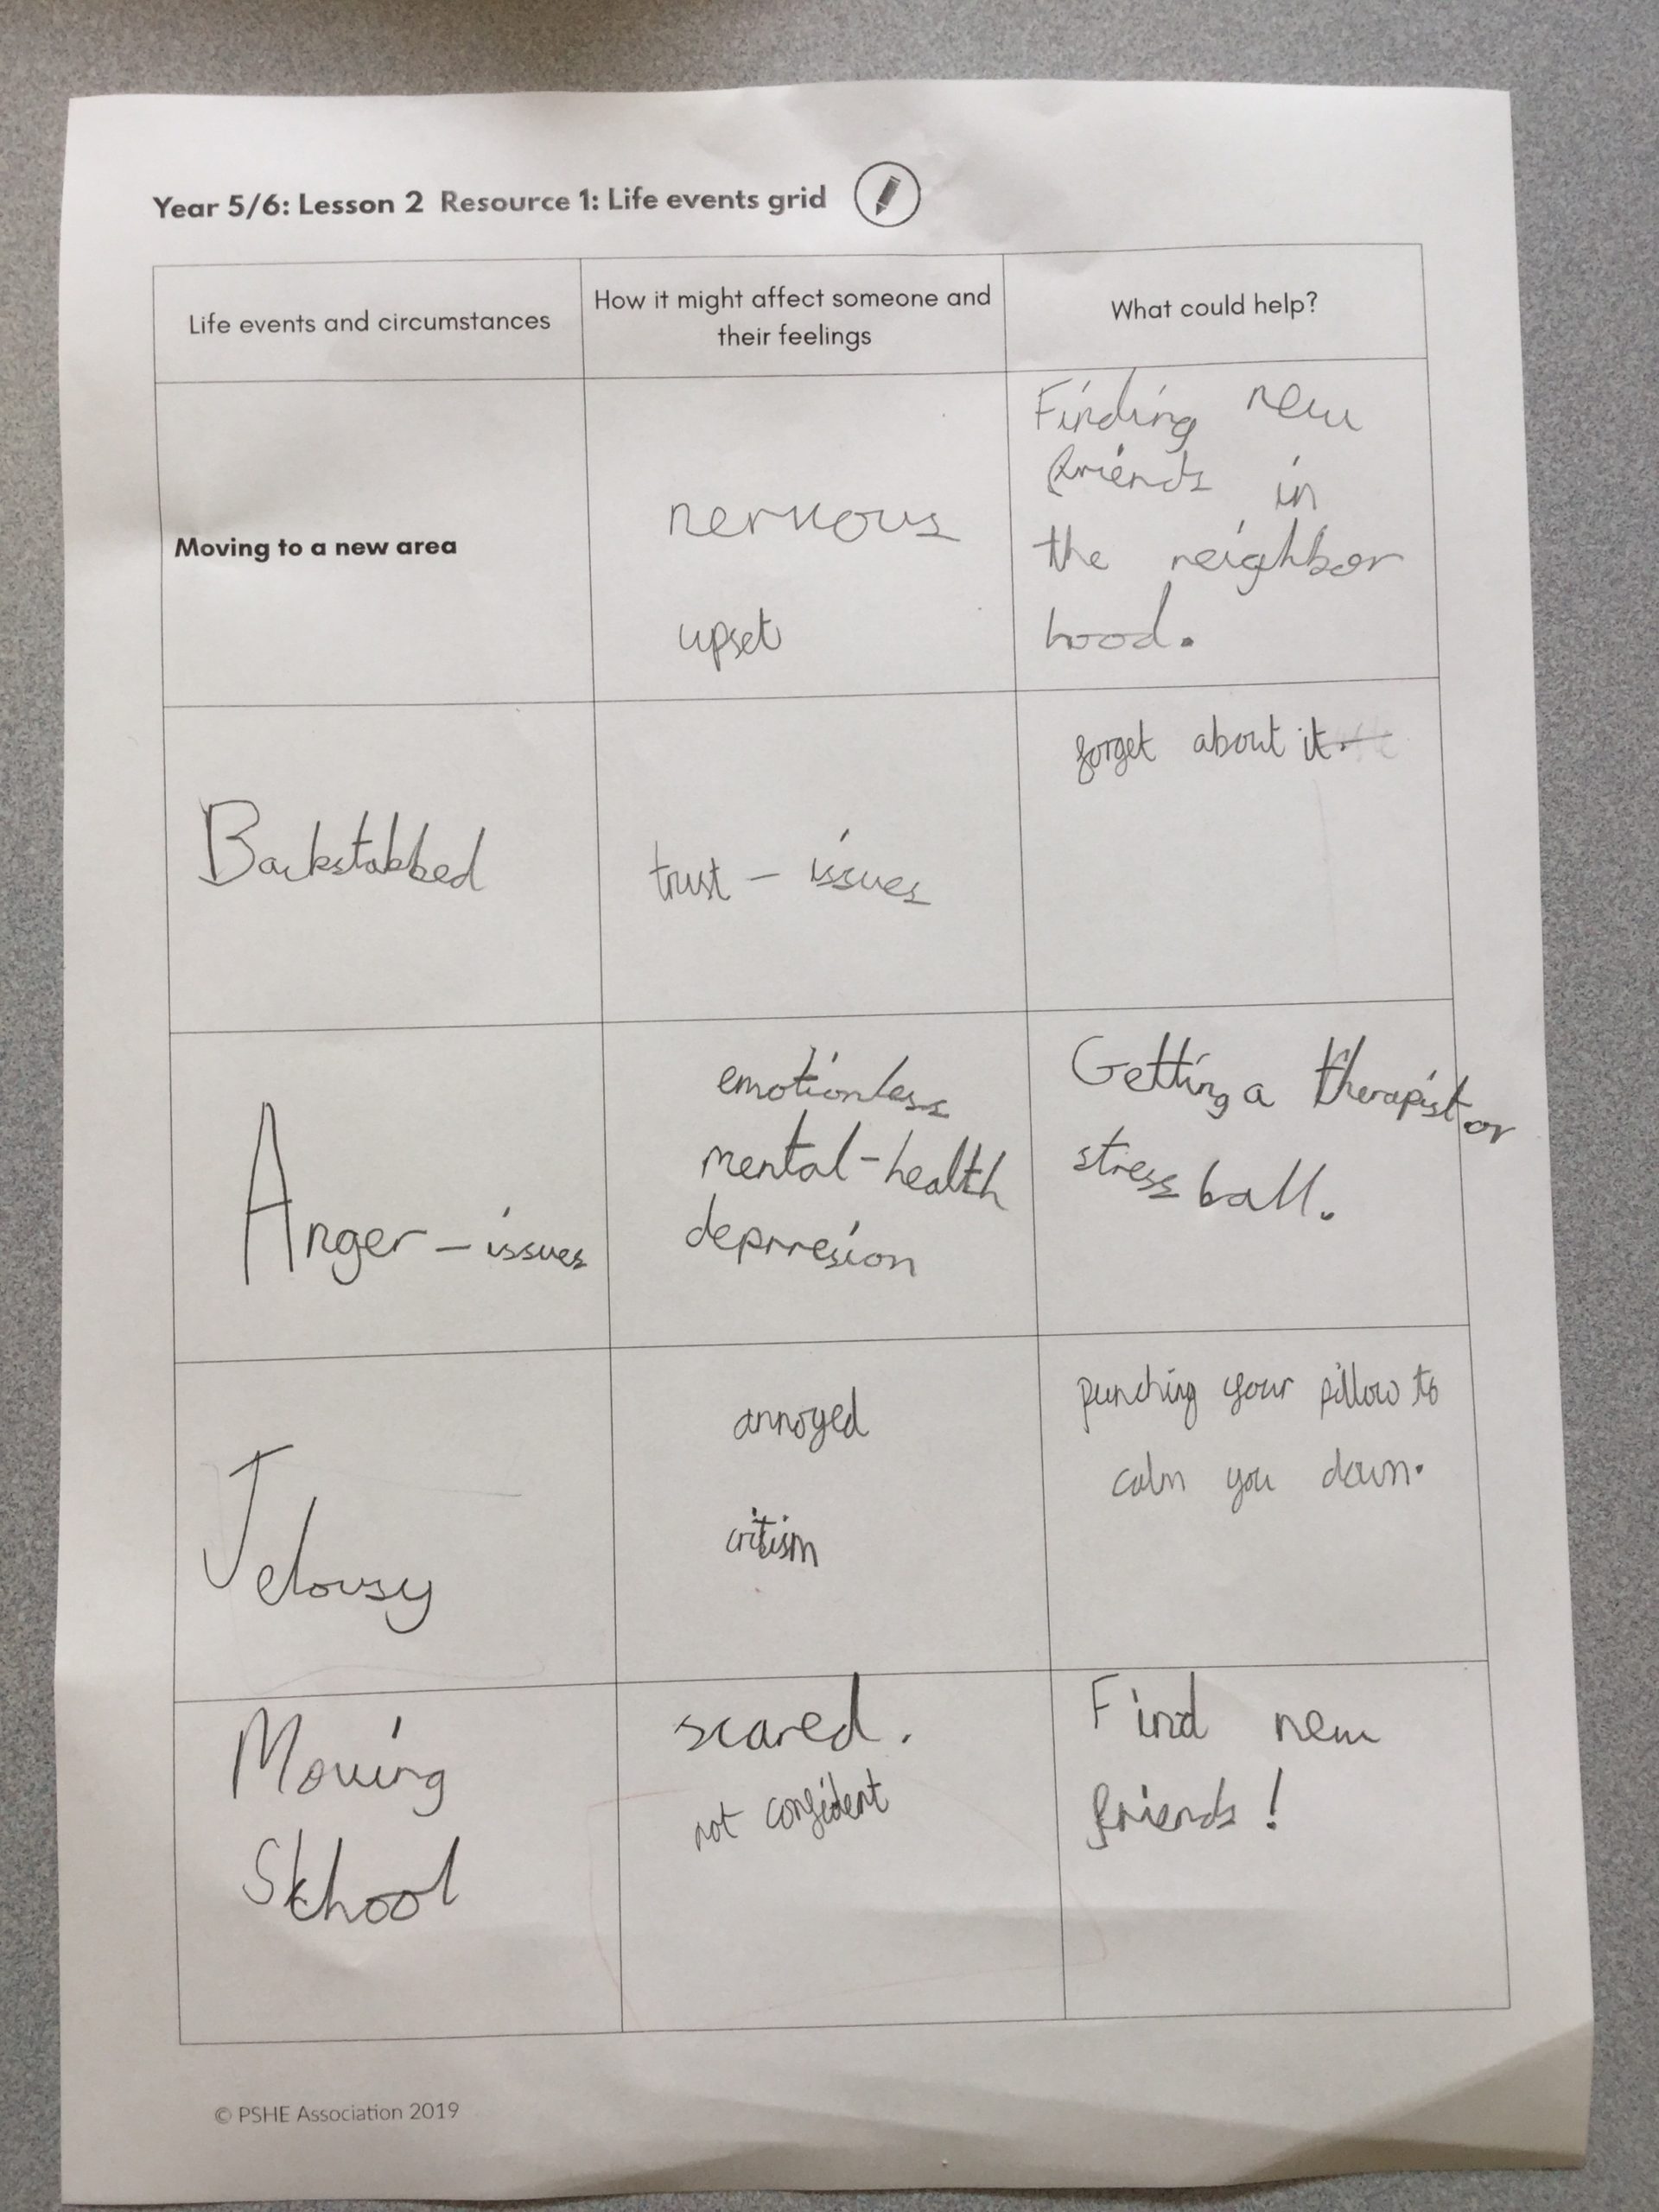 Year 5/6: Lesson 2 Resource 1: Life events grid
Life events and circumstances
How it might affect someone and
their feelings
What could help?
Moving to a new area
nervous
upset
Finding new
friends in
the neighbor
hood.
Backstabbed
trust - issues
forget about it.
Anger - issues
emotionless
mental-health
deprresion
Getting a therapist or
stress ball.
Jelousy
annoyed
critism
punching your pillow to
calm you down.
Moving
School
scared.
not confident
Find new
friends!
© PSHE Association 2019